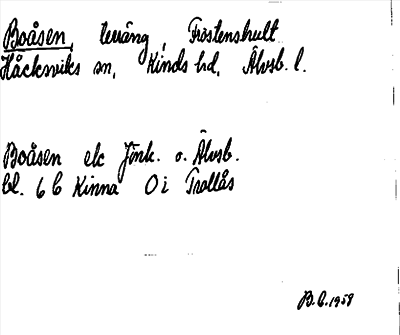 Boåsen, terräng, Fröstenshult
Håcksviks sn, Kinds hd, Älvsb. l.
Boåsen ek Jönk. o. Älvsb.
bl. 6 C Kinna 0 i Trollås
B.C. 1958